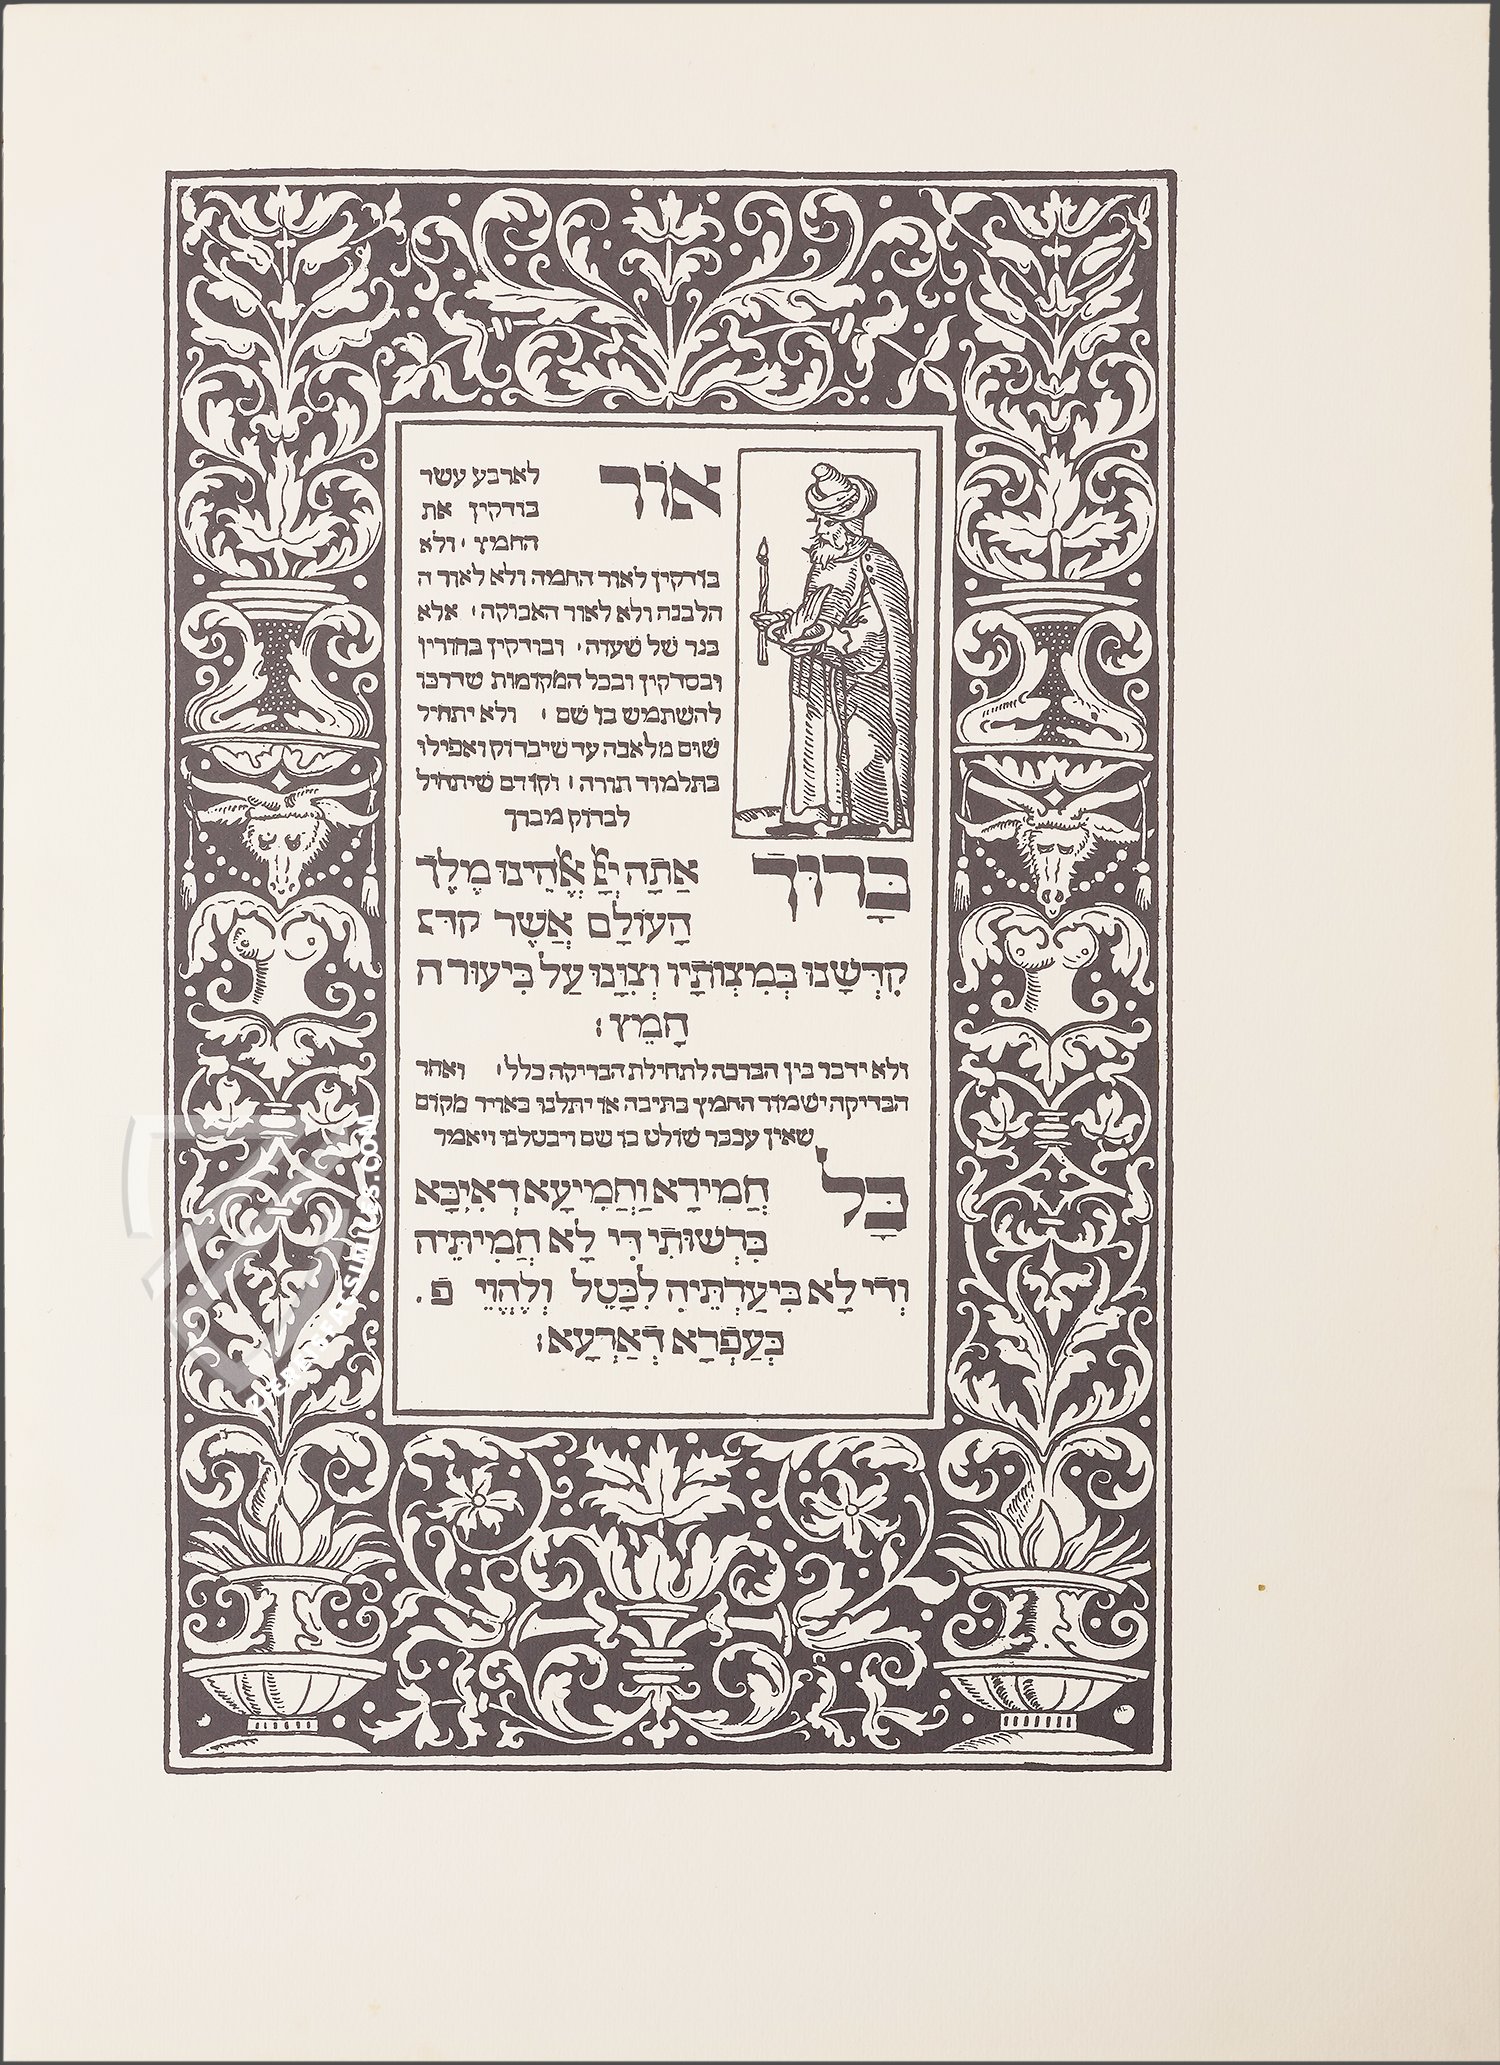 אור לארבע עשר
בודקין את
החמץ ׳ ולא
בודקין לאור החמה ולא לאור ה
הלבנה ולא לאור האבוקה ׳ אלא
בנר של שעוה ׳ ובודקין בחורין
ובסדקין ובכל המקומות שדרכו
להשתמש בו שם ׳ ולא יתחיל
שום מלאכה עד שיבדוק ואפילו
בתלמוד תורה ׳ וקודם שיתחיל
לבדוק מברך
בָּרוּךְ אַתָּה יְיָ אֱלֹהֵינוּ מֶלֶךְ
הָעוֹלָם אֲשֶׁר קדּ
קִדְּשָׁנוּ בְּמִצְוֹתָיו וְצִוָּנוּ עַל בִּיעוּר ה
חָמֵץ :
ולא ידבר בין הברכה לתחילת הבדיקה כלל ׳ ואחר
הבדיקה ישמור החמץ בתיבה או יתלנו באויר מקום
שאין עכבר שולט בו שם ויבטלנו ויאמר
כָּל חֲמִירָא וַחֲמִיעָא דְאִיכָּא
בִּרְשׁוּתִי דִּי לָא חֲמִיתֵּיהּ
וְדִי לָא בִּיעַרְתֵּיהּ לִבָּטֵל וְלֶהֱוֵי פ.
כְּעַפְרָא דְּאַרְעָא :
ZIEREIS FACSIMILES.COM